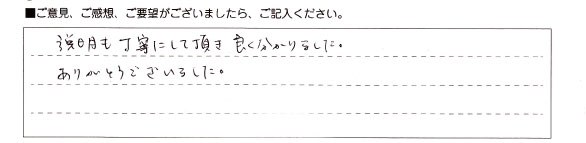 ■ご意見、ご感想、ご要望がございましたら、ご記入ください。
説明も丁寧にして頂き良く分かりました。
ありがとうございました。